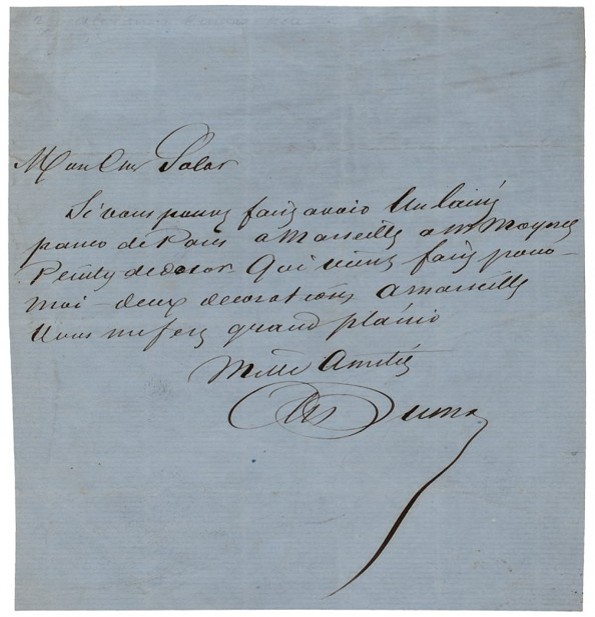 Mon cher Solar
Si vous pouvez faire avoir un laissez
passer de Paris a Marseille a m Moynet
Peintre de decor Qui vient faire pour
moi deux decorations a marseille
Vous me ferez grand plaisir
Mille Amitiés
Alex Dumas